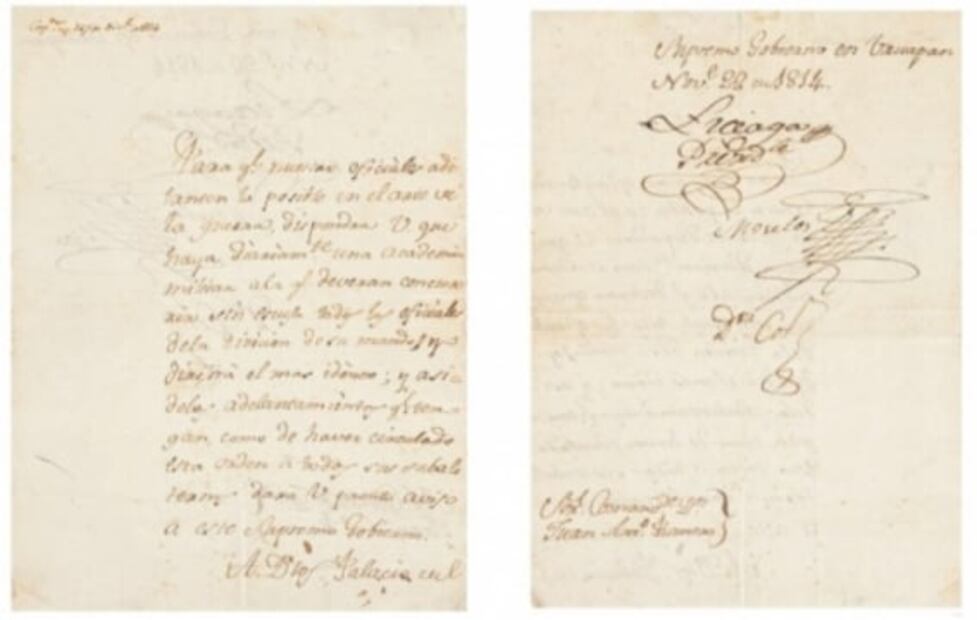 Para q.e nuestros oficiales ade
lanten lo posible en el arte de
la guerra, dispondra V. que
haya diariam.te una academia
militar a la q.e deveran concurrir
todos los oficiales
de la division de su mando, y
dirijirá el mas idoneo; y asi
de los adelantamientos q.e ten
gan, como de haver circulado
esta orden a todos sus subal
ternos dará V. puntual aviso
a este Supremo Gobierno.
A. Dios Palacio del
Supremo Gobierno en
Nov.e 28 de 1814.
Liceaga
Presid.te
Morelos
D.or Cos
Sõr. Comand.te
Juan